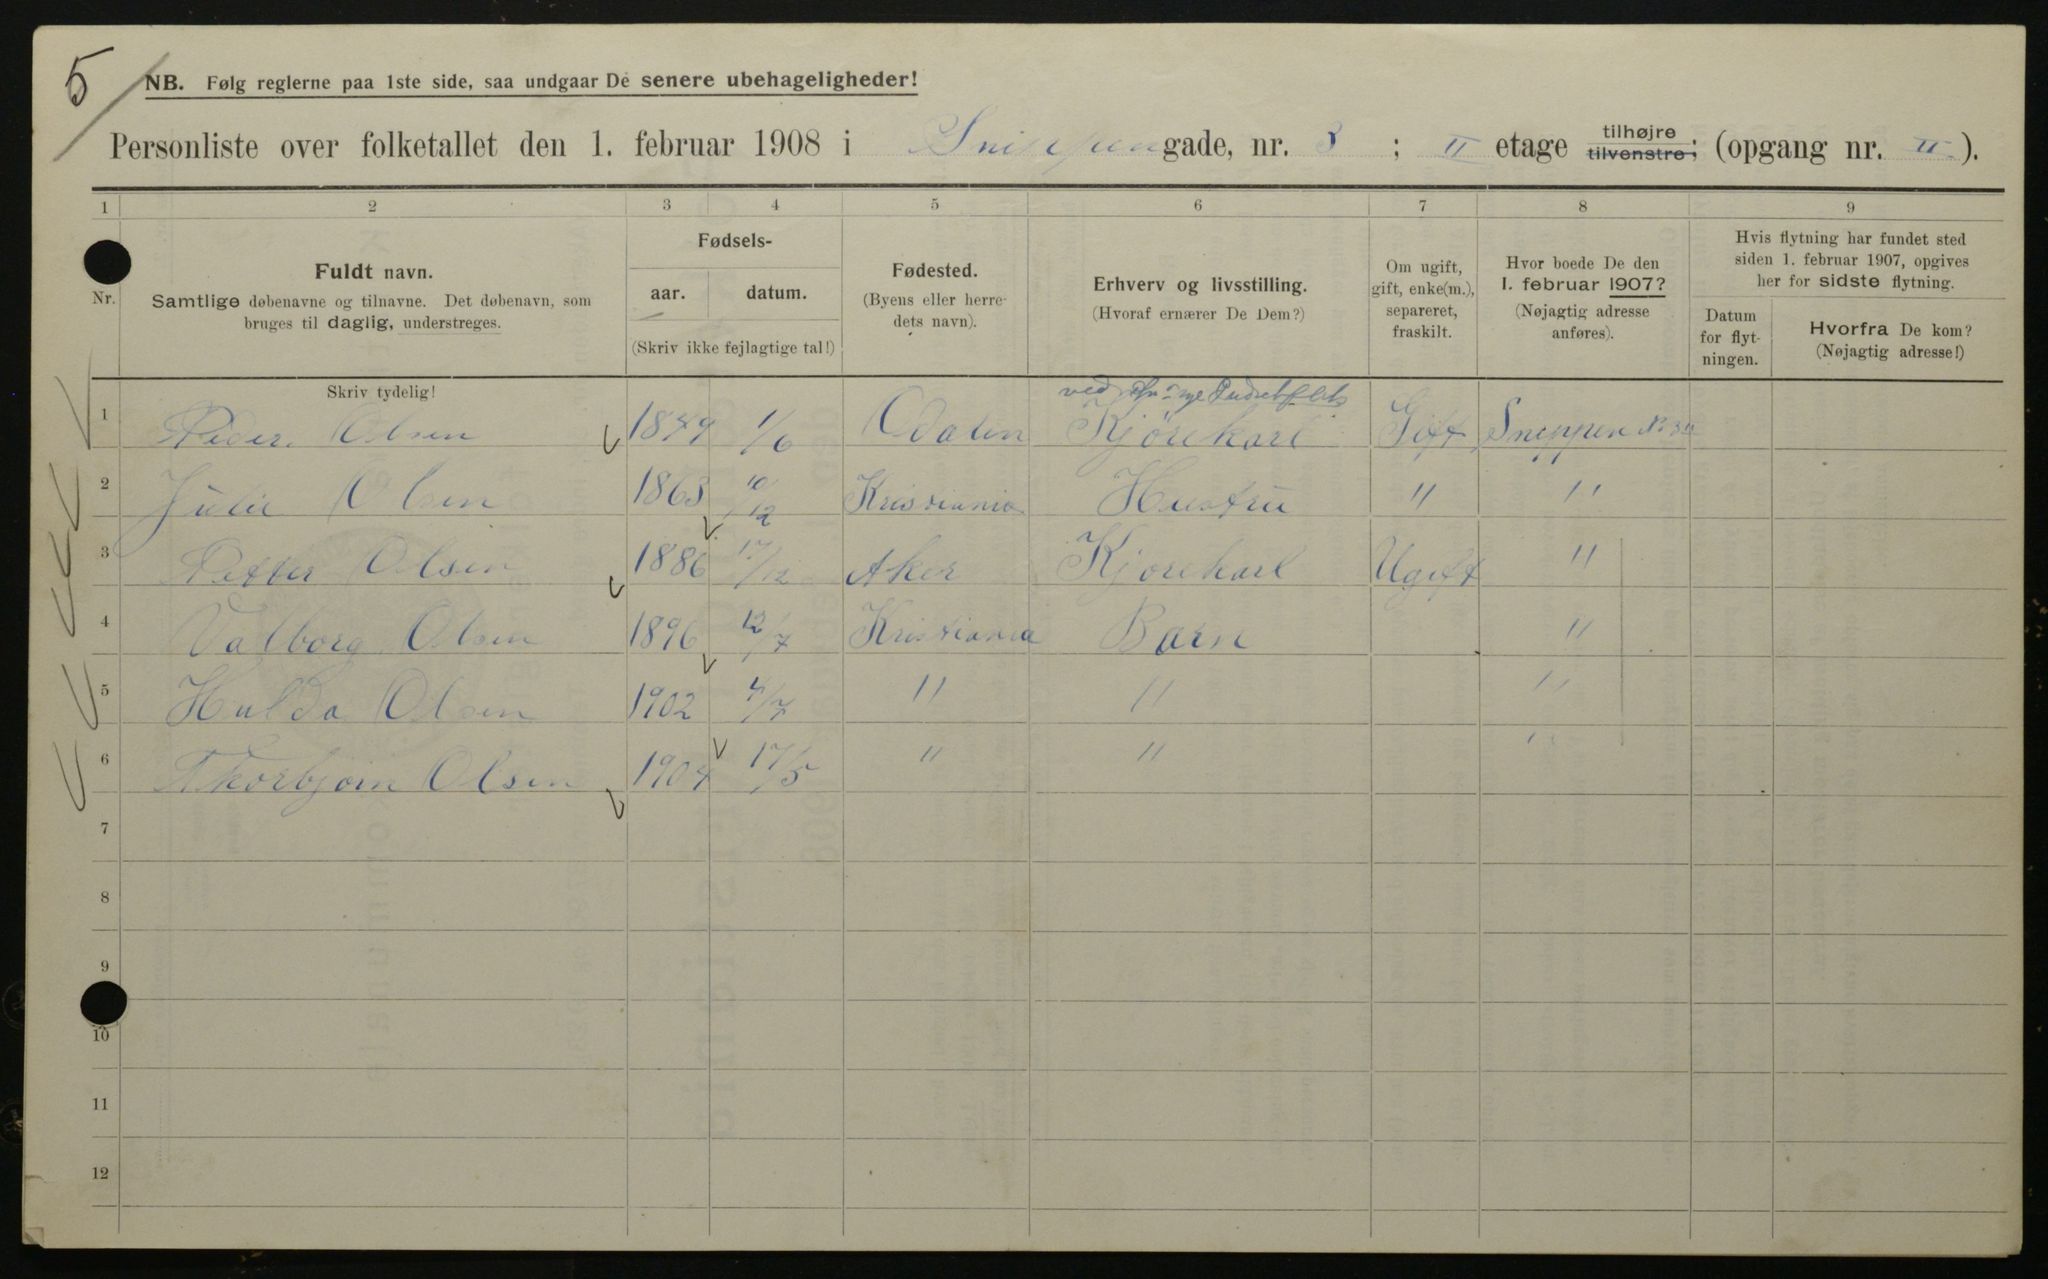 5
NB. Følg reglerne paa 1ste side, saa undgaar De senere ubehageligheder!
Personliste over folketallet den 1. februar 1908 i gade, nr. 3 ; II etage tilhøjre tilvenstre; (opgang nr. II).
1 2 3 4 5 6 7 8 9
Nr.
Fuldt navn.
Samtlige døbenavne og tilnavne. Det døbenavn, som
bruges til daglig, understreges.
Skriv tydelig!
Fødsels-
aar. datum.
(Skriv ikke fejlagtige tal!)
Fødested.
(Byens eller herre-
dets navn).
Erhverv og livsstilling.
(Hvoraf ernærer De Dem?)
Om ugift,
gift, enke(m.),
separeret,
fraskilt.
Hvor boede De den
1. februar 1907?
(Nøjagtig adresse
anføres).
Hvis flytning har fundet sted
siden 1. februar 1907, opgives
her for sidste flytning.
Datum
for flyt-
ningen.
Hvorfra De kom?
(Nøjagtig adresse!)
ved
1 Peder Olsen 1849 1/6 Odalen Kjørekarl Gift Sneppen No 3
2 Julie Olsen 1863 10/12 Kristiania Hustru " "
3 Petter Olsen 1886 17/12 Aker Kjørekarl Ugift "
4 Valborg Olsen 1896 12/7 Kristiania Barn "
5 Hulda Olsen 1902 4/7 " " "
6 Thorbjørn Olsen 1904 17/5 " " "
7
8
9
10
11
12